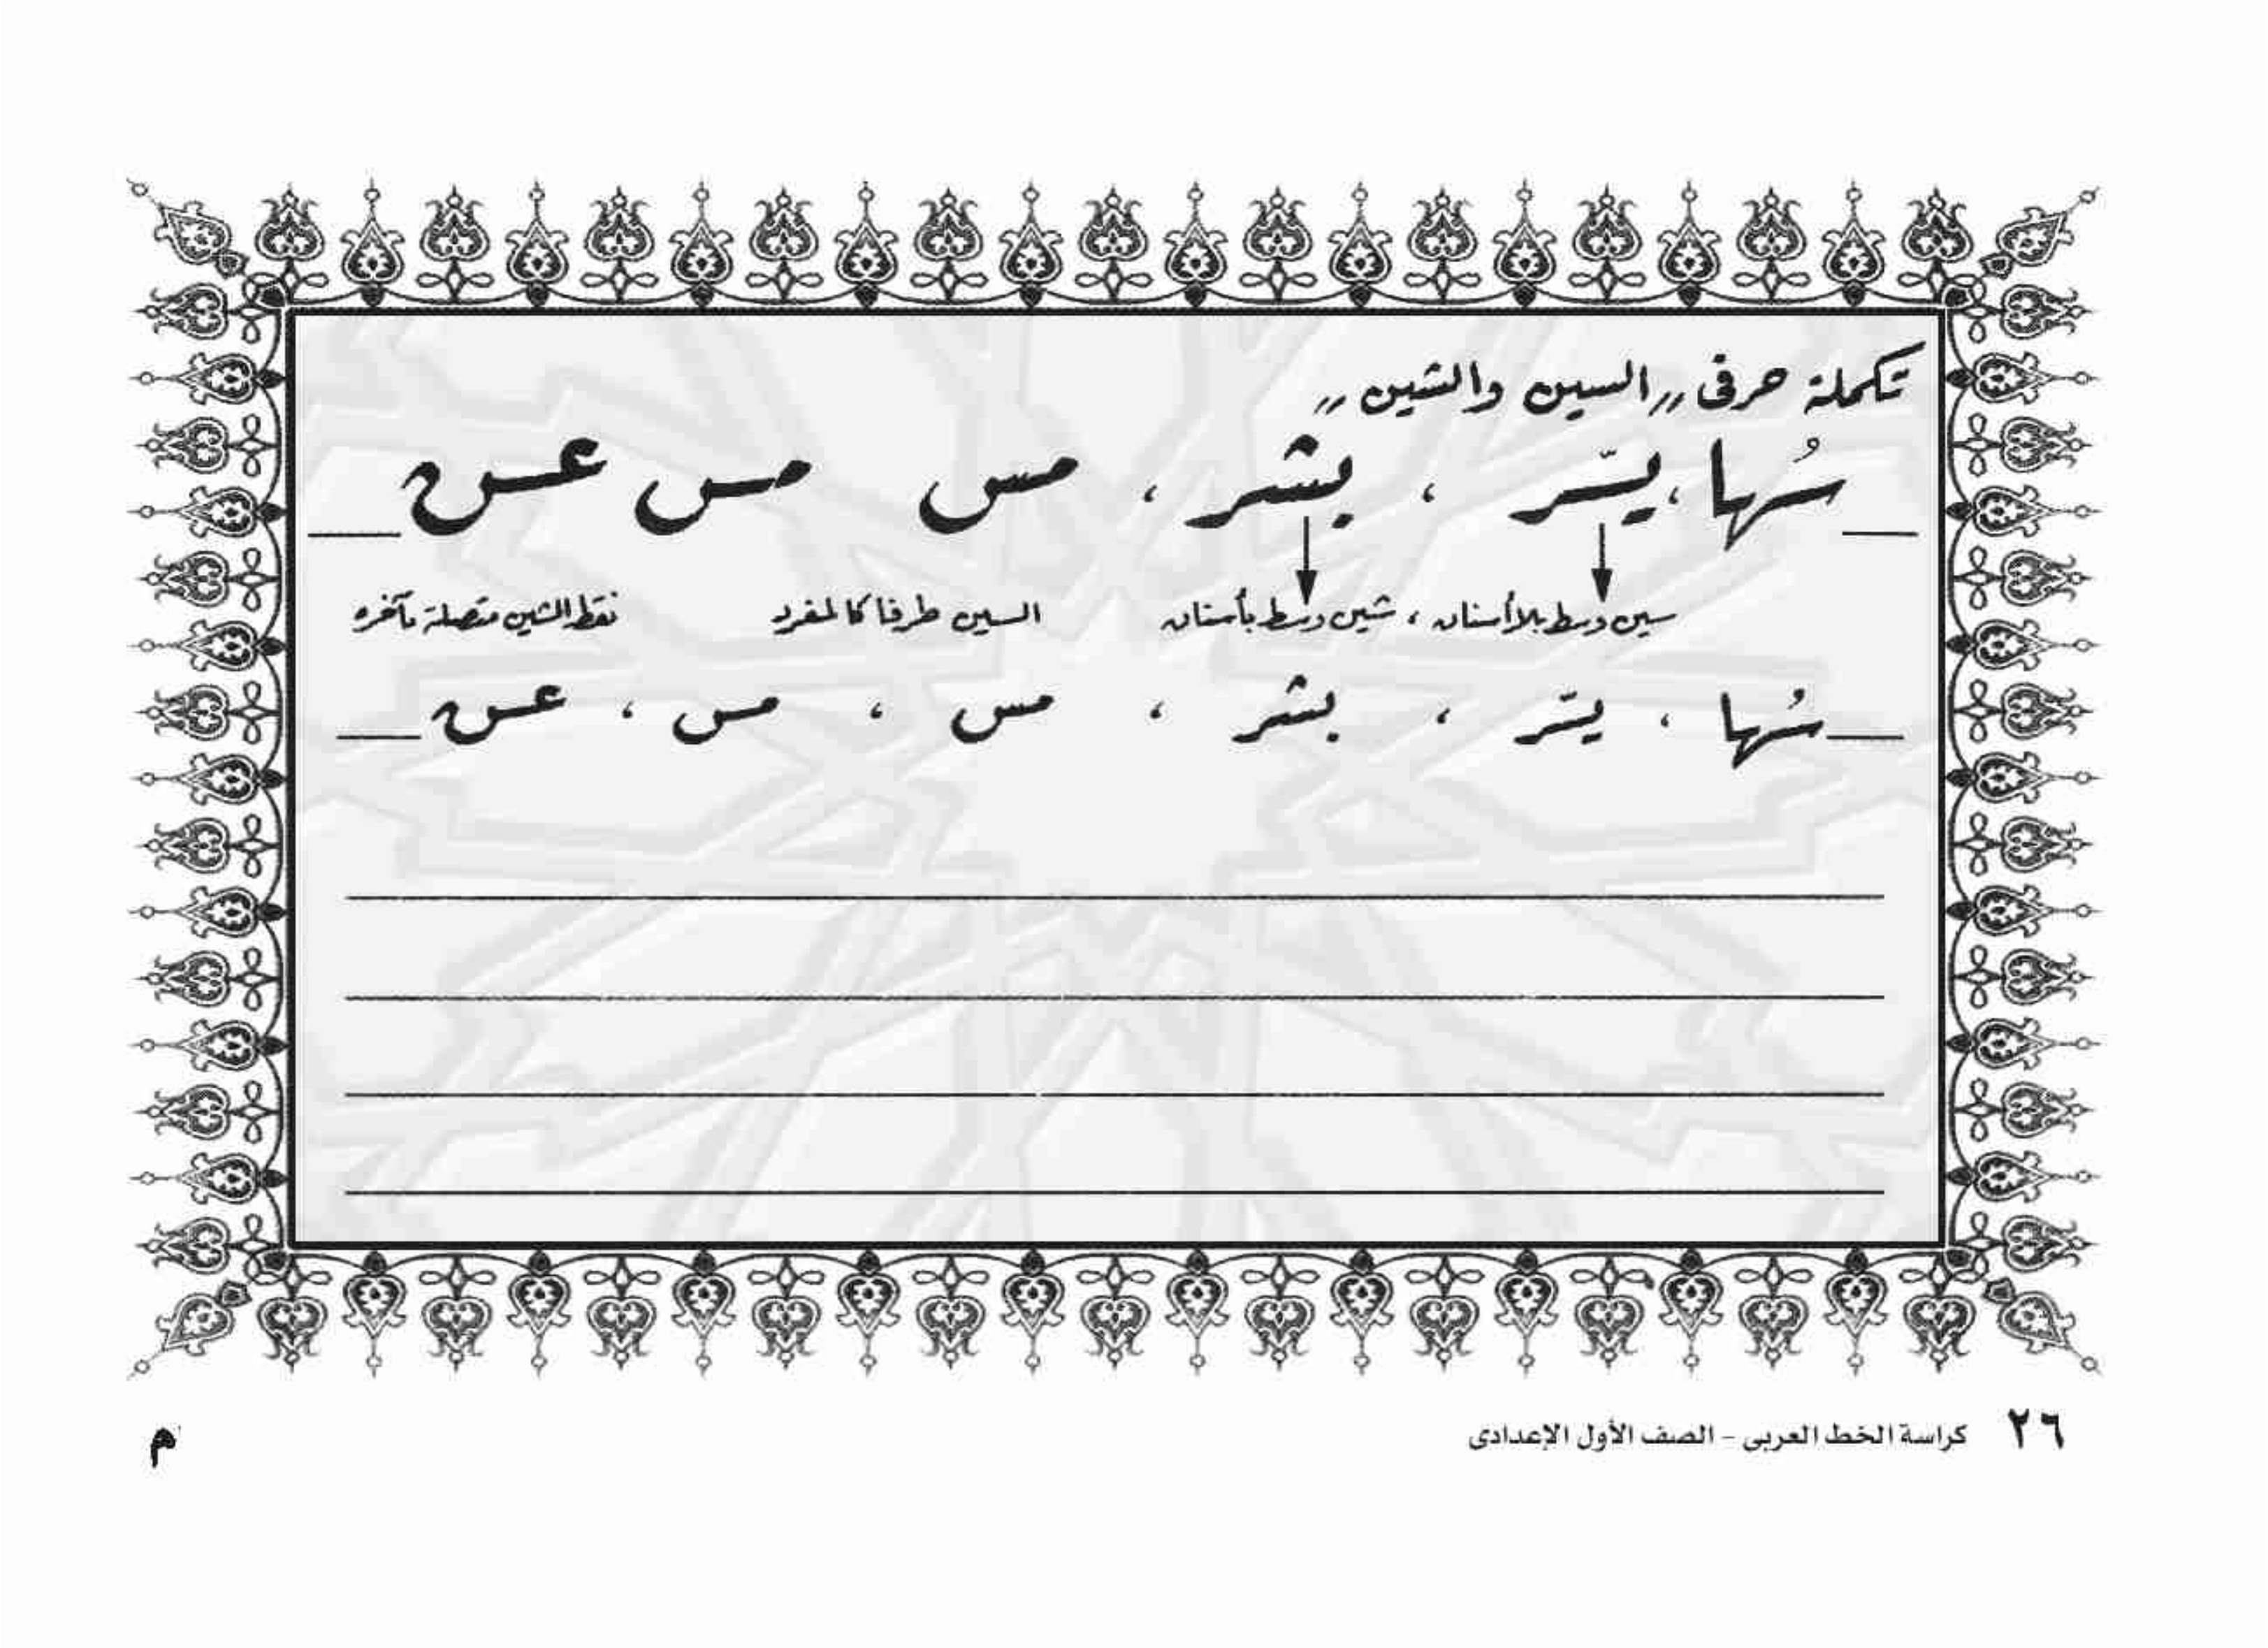 تكملة حرفى ,, السين والشين ,,
سُها ، يسّر ، بشر ، مس مس عش
سين وسط بلا أسنان ، شين وسط بأسنان السين طرفا كالمفرد نقط الشين متصلة بآخره
سُها ، يسّر ، بشر ، مس ، مس ، عش
٢٦ كراسة الخط العربى - الصف الأول الإعدادى م